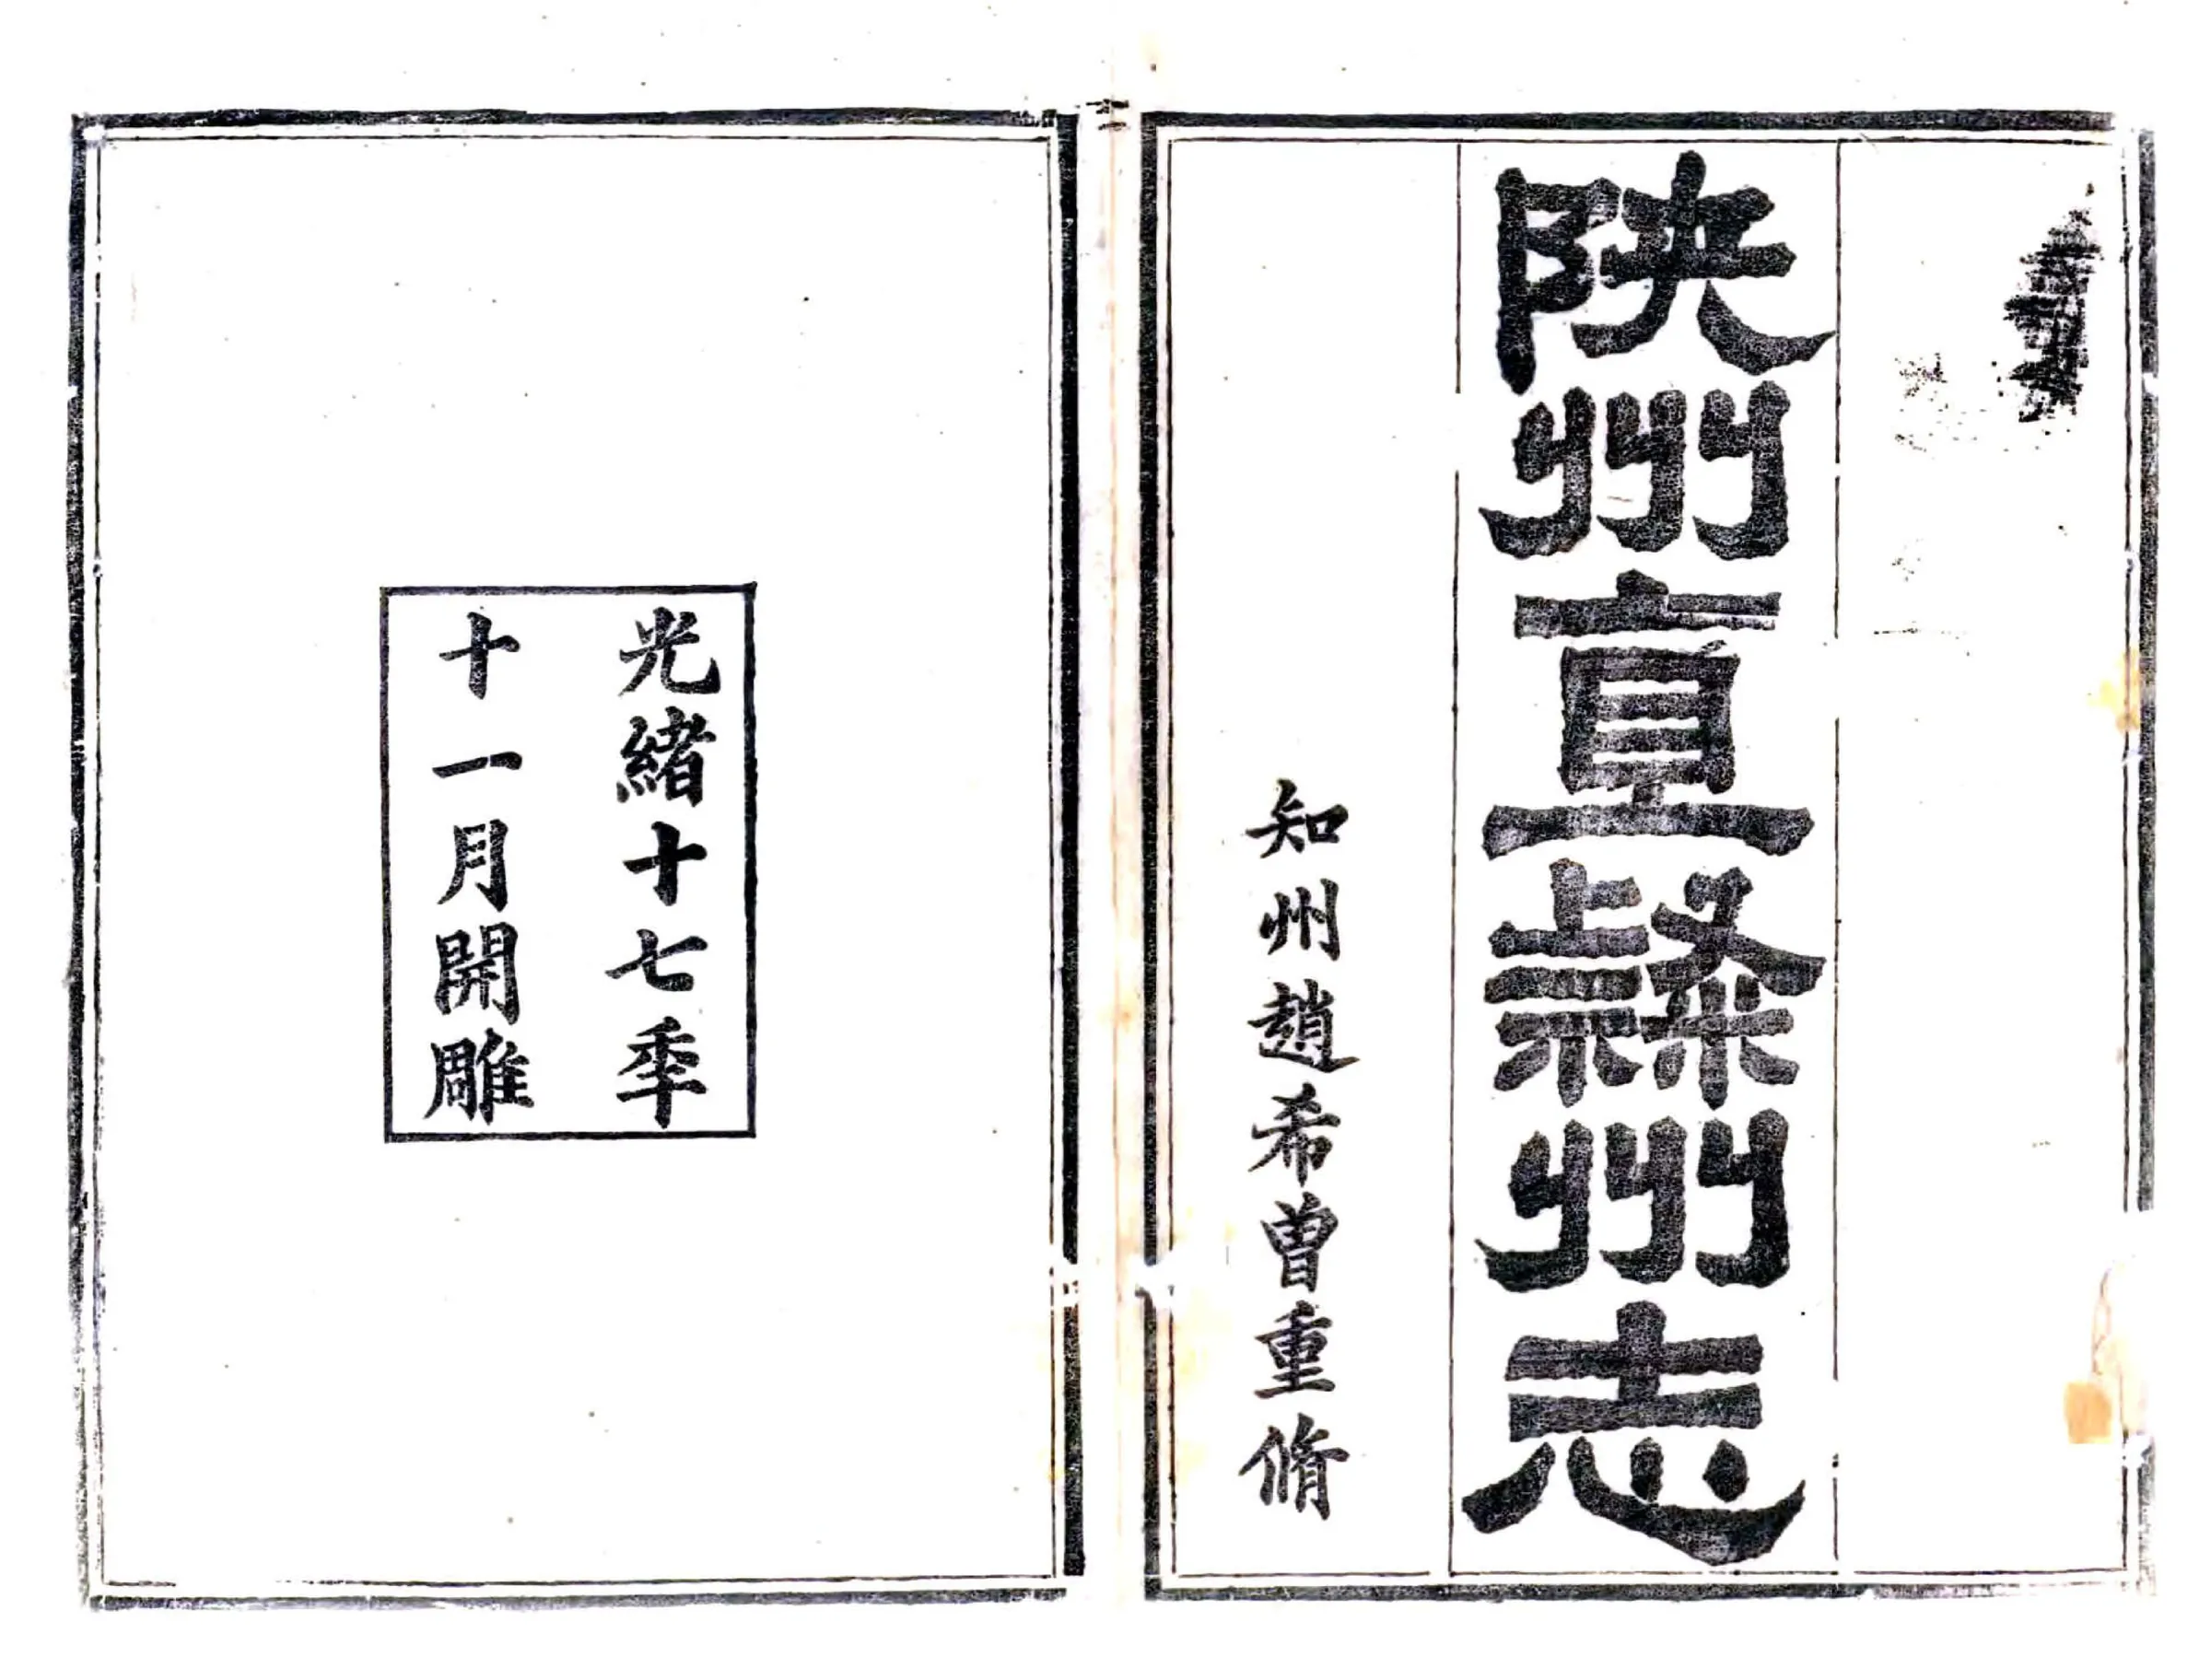 陜州直隸州志
知州趙希曾重脩
光緒十七季
十一月開雕